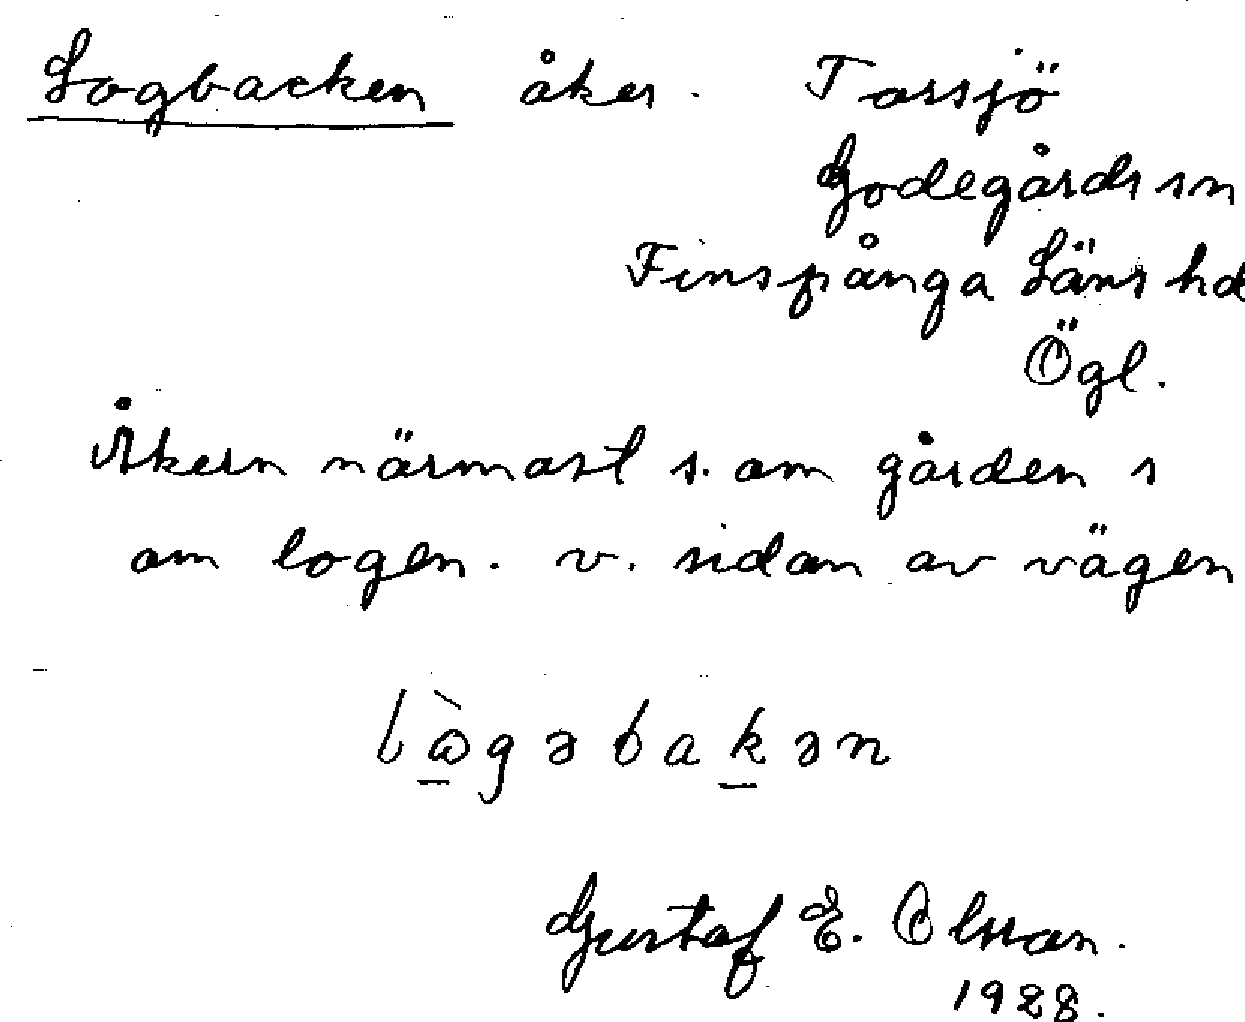 Logbacken åker. Torsjö
Godegårds sn
Finspånga Läns hd
Ögl.
Åkern närmast s. om gården s
om logen. v. sidan av vägen
lògəbakən
Gustaf E. Olsson.
1928.